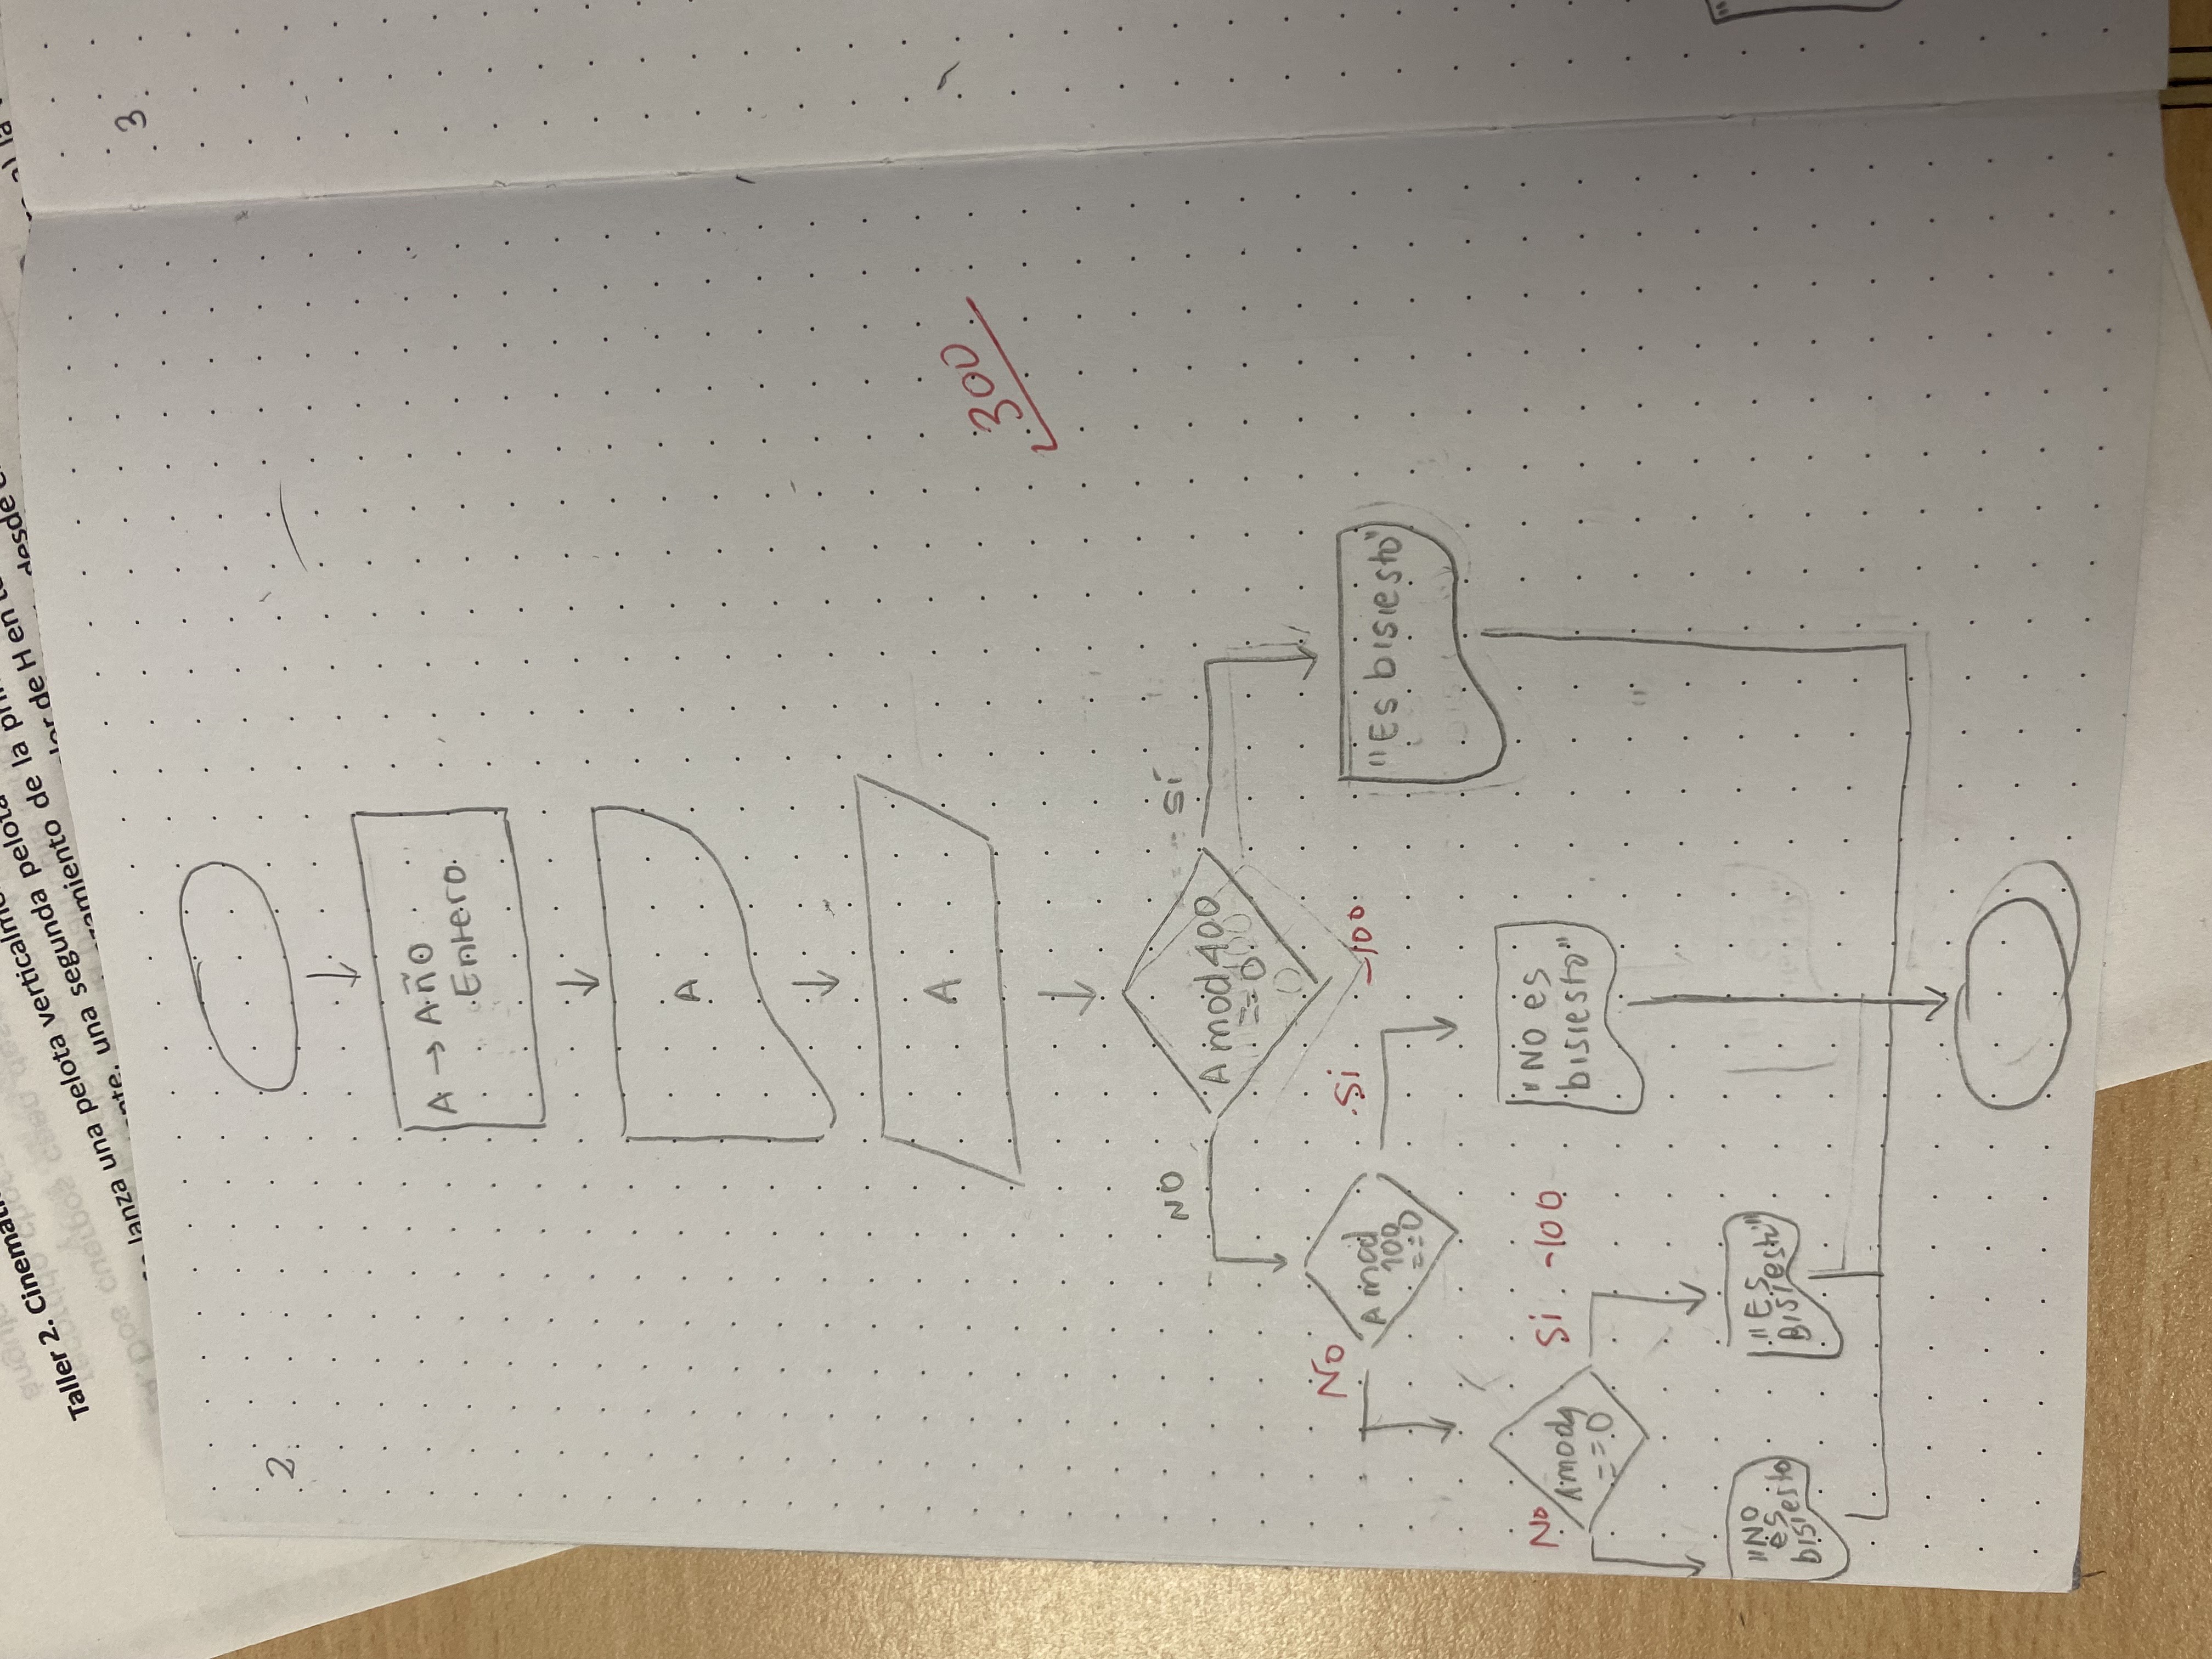 Taller 2. Cinemáti
lanza una pelota verticalm
una segunda pelota
zamiento de la pri
lor de H en
desde
a) la
3
2
A → Año
Entero
A
A
300
NO
SÍ
A mod 400
==0
No
Si
-100
A mod
100
==0
"Es bisiesto"
No
Si -100
A mod 4
==0
"No es
bisiesto"
"No
es
bisiesto
"Es
Bisiesto"